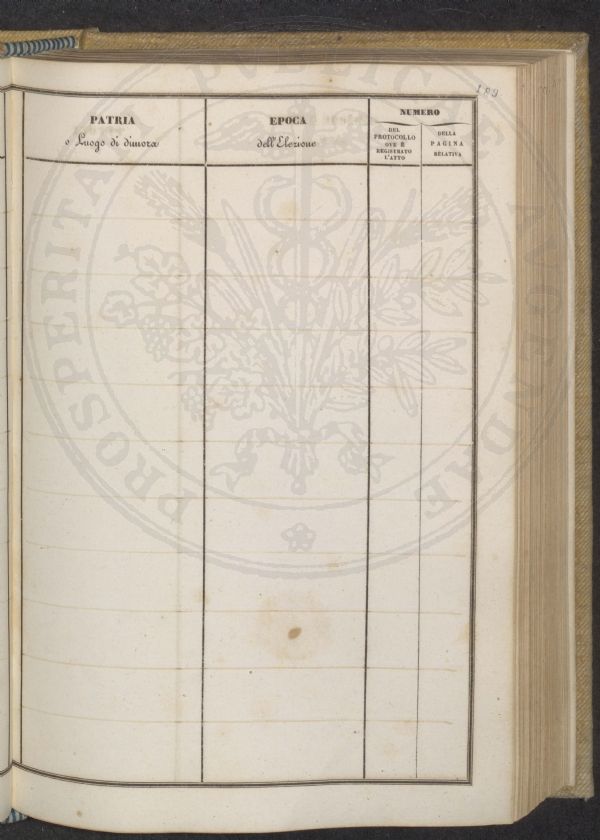 189
PATRIA
o Luogo di dimora
EPOCA
dell'Elezione
NUMERO
DEL
PROTOCOLLO
OVE È
REGISTRATO
L'ATTO
DELLA
PAGINA
RELATIVA
PROSPERITATI PUBLICAE AUGENDAE